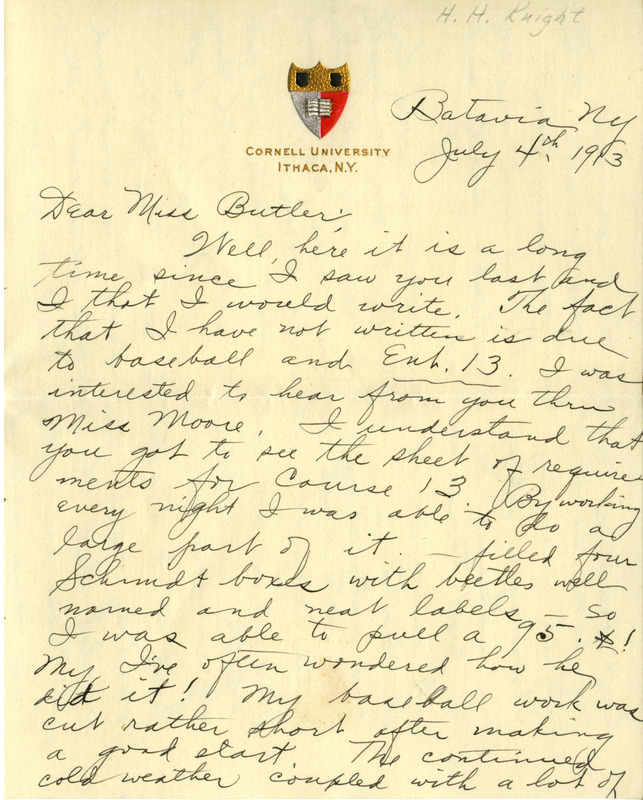 H. H. Knight
CORNELL UNIVERSITY
ITHACA, N.Y.
Batavia Ny
July 4th, 1913
Dear Miss Butler;
Well, here it is a long
time since I saw you last and
I that I would write. The fact
that I have not written is due
to baseball and Ent. 13. I was
interested to hear from you thru
Miss Moore. I understand that
you got to see the sheet of require
ments for Course 13. By working
every night I was able to do a
large part of it. – filled four
Schmidt boxes with beetles well
named and neat labels – so
I was able to pull a 95. !
My I've often wondered how he
did it! My baseball work was
cut rather short after making
a good start. The continued
cold weather coupled with a lot of